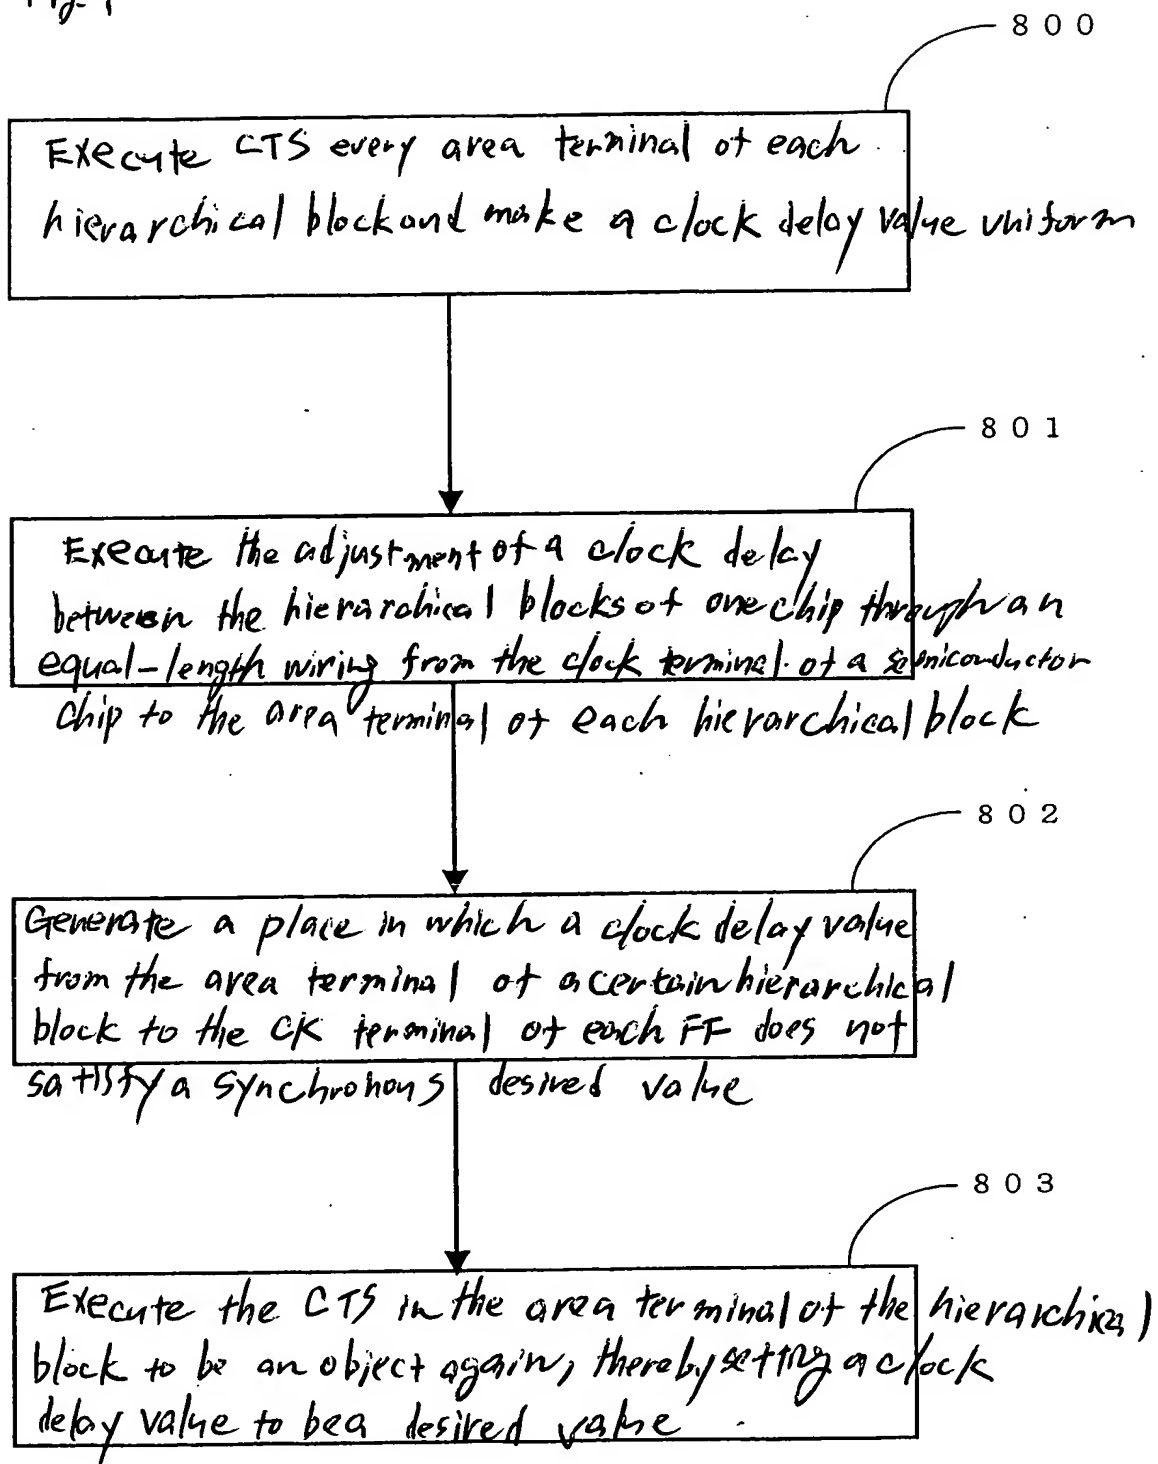 800
Execute CTS every area terminal of each
hierarchical block and make a clock delay value uniform
801
Execute the adjustment of a clock delay
between the hierarchical blocks of one chip through an
equal-length wiring from the clock terminal of a semiconductor
chip to the area terminal of each hierarchical block
802
Generate a place in which a clock delay value
from the area terminal of a certain hierarchical
block to the CK terminal of each FF does not
satisfy a synchronous desired value
803
Execute the CTS in the area terminal of the hierarchical
block to be an object again, thereby setting a clock
delay value to be a desired value